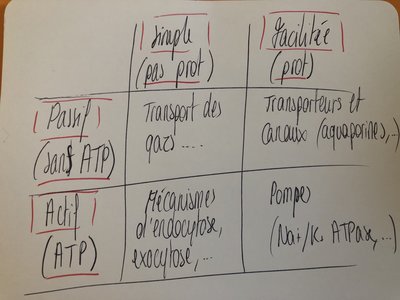 Simple
(pas prot)
Facilitée
(prot)
Passif
(sans ATP)
Transport des
gazs ....
Transporteurs et
canaux (aquaporines,..)
Actif
(ATP)
Mécanismes
d'endocytose,
exocytose,...
Pompes
(Na+/K+ ATPase,...)